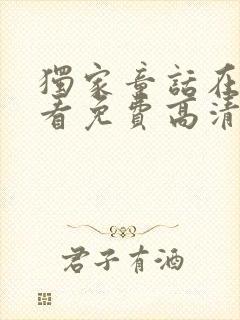 獨家童話在
看免費高清
君子有酒